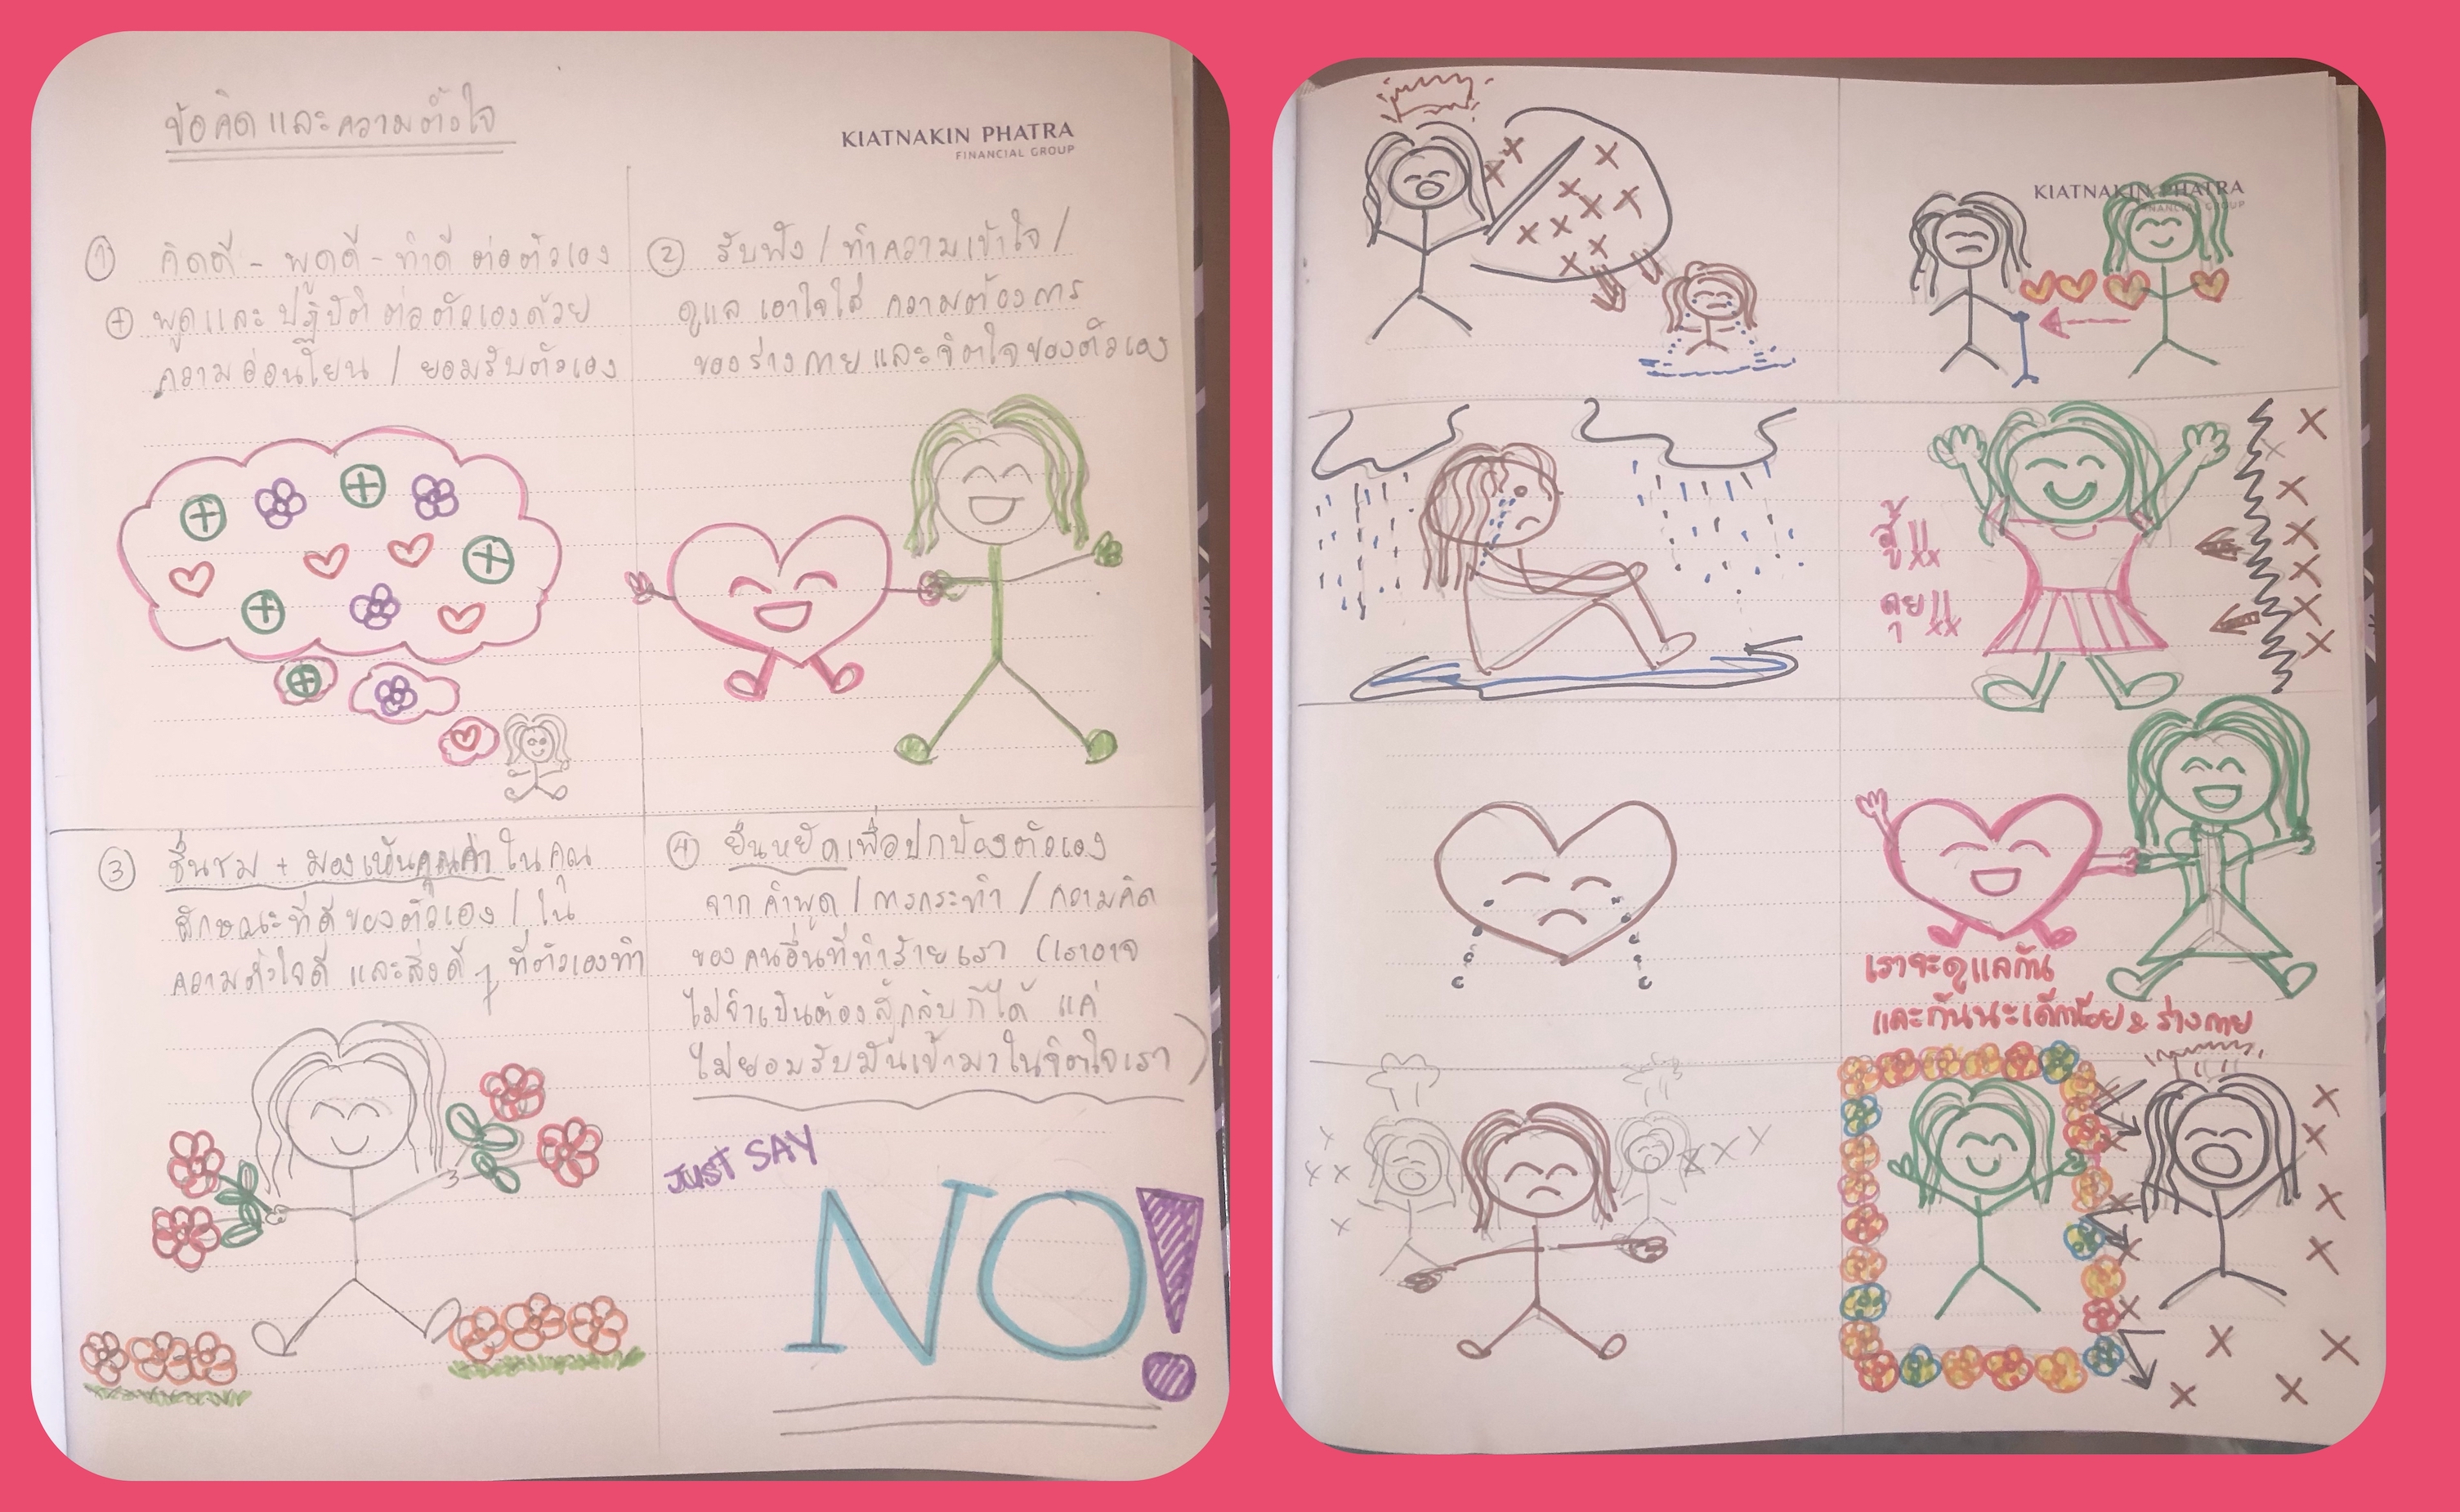 ข้อคิดและความตั้งใจ
KIATNAKIN PHATRA
FINANCIAL GROUP
① คิดดี - พูดดี - ทำดี ต่อตัวเอง
⊕ พูดและปฏิบัติต่อตัวเองด้วย
ความอ่อนโยน / ยอมรับตัวเอง
② รับฟัง / ทำความเข้าใจ /
ดูแล เอาใจใส่ ความต้องการ
ของร่างกายและจิตใจของตัวเอง
③ ชื่นชม + มองเห็นคุณค่าในคุณ
ลักษณะที่ดีของตัวเอง / ใน
ความตั้งใจดี และสิ่งดีๆ ที่ตัวเองทำ
④ ยืนหยัดเพื่อปกป้องตัวเอง
จากคำพูด / การกระทำ / ความคิด
ของคนอื่นที่ทำร้ายเรา (เราอาจ
ไม่จำเป็นต้องสู้กลับก็ได้ แค่
ไม่ยอมรับมันเข้ามาในจิตใจเรา)
JUST SAY
NO!
KIATNAKIN PHATRA
FINANCIAL GROUP
สู้!!
ลุย!!
เราจะดูแลกัน
และกันนะเด็กน้อย & ร่างกาย